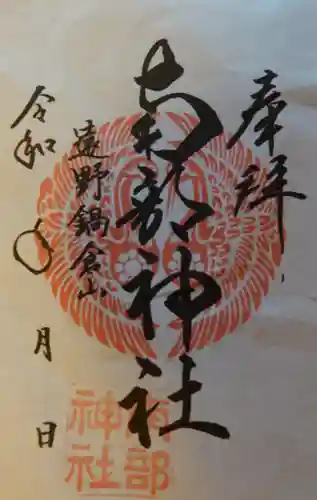 奉拝
南部神社
遠野鍋倉山
令和 〇 月 日
南部
神社